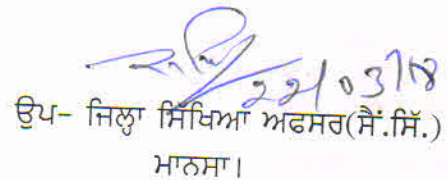 22/03/18
ਉਪ- ਜਿਲ੍ਹਾ ਸਿੱਖਿਆ ਅਫਸਰ(ਸੈਂ.ਸਿੱ.)
ਮਾਨਸਾ।